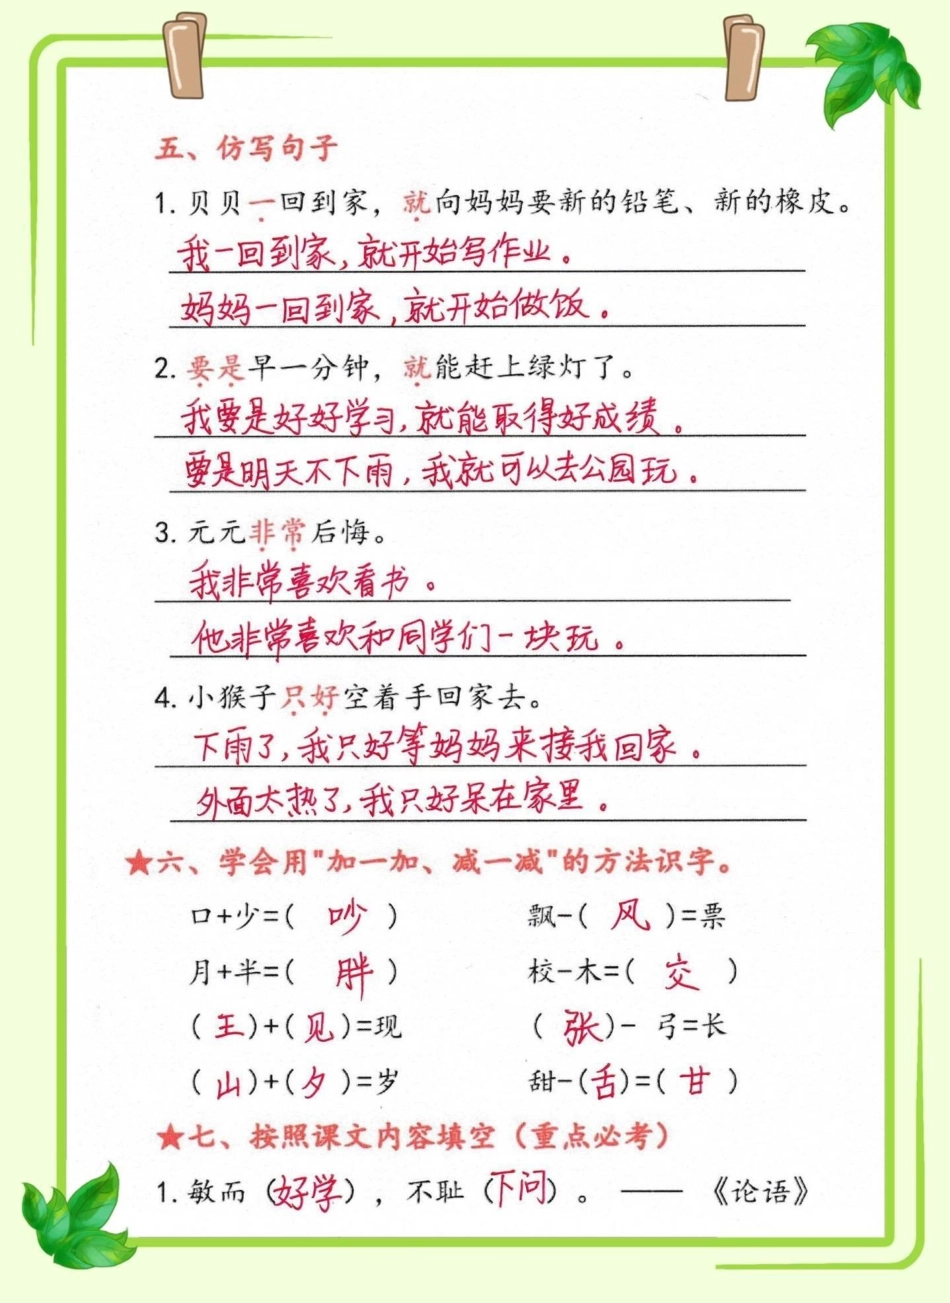 五、仿写句子
1. 贝贝一回到家，就向妈妈要新的铅笔、新的橡皮。
我一回到家,就开始写作业。
妈妈一回到家,就开始做饭。
2. 要是早一分钟，就能赶上绿灯了。
我要是好好学习,就能取得好成绩。
要是明天不下雨,我就可以去公园玩。
3. 元元非常后悔。
我非常喜欢看书。
他非常喜欢和同学们一块玩。
4. 小猴子只好空着手回家去。
下雨了,我只好等妈妈来接我回家。
外面太热了,我只好呆在家里。
★六、学会用"加一加、减一减"的方法识字。
口+少=( 吵 ) 飘-( 风 )=票
月+半=( 胖 ) 校-木=( 交 )
( 王 )+( 见 )=现 ( 张 )- 弓=长
( 山 )+( 夕 )=岁 甜-(舌)=( 甘 )
★七、按照课文内容填空（重点必考）
1. 敏而（好学），不耻（下问）。 —— 《论语》